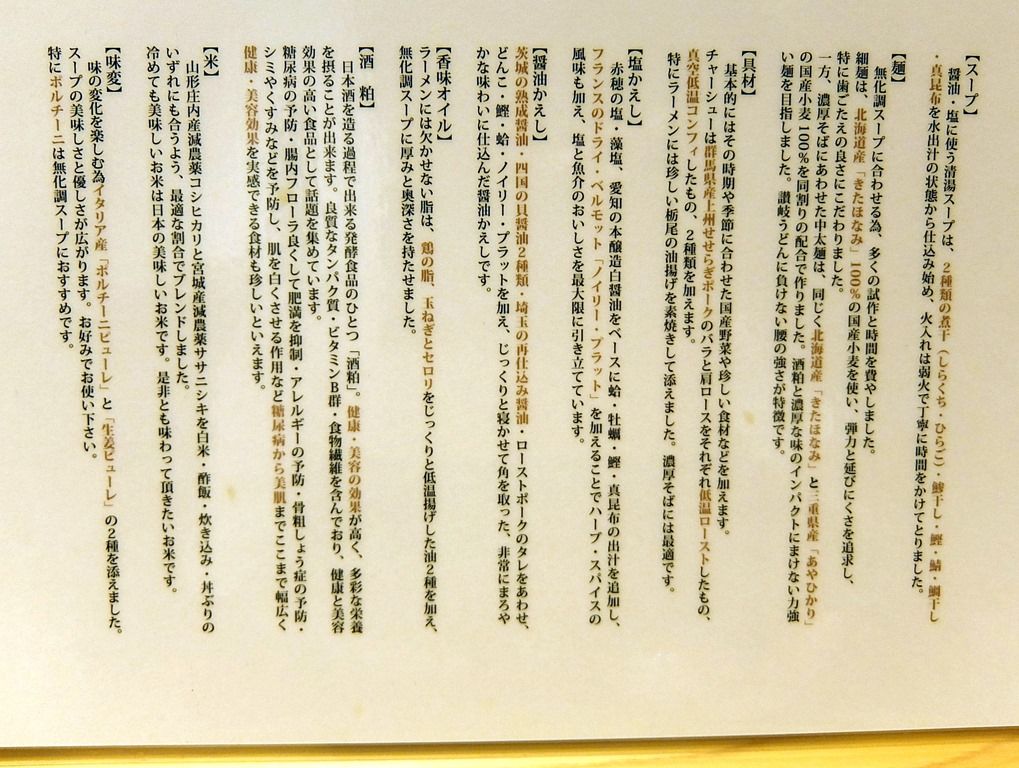 【スープ】
醤油・塩に使う清湯スープは、2種類の煮干（しらくち・ひらご）・鯵干し・鰹・鯖・鯛干し
・真昆布を水出汁の状態から仕込み始め、火入れは弱火で丁寧に時間をかけてとりました。
【麺】
無化調スープに合わせる為、多くの試作と時間を費やしました。
細麺は、北海道産「きたほなみ」100%の国産小麦を使い、弾力と延びにくさを追求し、
特に歯ごたえの良さにこだわりました。
一方、濃厚そばにあわせた中太麺は、同じく北海道産「きたほなみ」と三重県産「あやひかり」
の国産小麦100%を同割りの配合で作りました。酒粕と濃厚な味のインパクトにまけない力強
い麺を目指しました。讃岐うどんに負けない腰の強さが特徴です。
【具材】
基本的にはその時期や季節に合わせた国産野菜や珍しい食材などを加えます。
チャーシューは群馬県産上州せせらぎポークのバラと肩ロースをそれぞれ低温ローストしたもの、
真空低温コンフィしたもの、2種類を加えます。
特にラーメンには珍しい栃尾の油揚げを素焼きして添えました。濃厚そばには最適です。
【塩かえし】
赤穂の塩・藻塩、愛知の本醸造白醤油をベースに蛤・牡蠣・鰹・真昆布の出汁を追加し、
フランスのドライ・ベルモット「ノイリー・プラット」を加えることでハーブ・スパイスの
風味も加え、塩と魚介のおいしさを最大限に引き立てています。
【醤油かえし】
茨城の熟成醤油・四国の貝醤油2種類・埼玉の再仕込み醤油・ローストポークのタレをあわせ、
どんこ・鰹・蛤・ノイリー・プラットを加え、じっくりと寝かせて角を取った、非常にまろや
かな味わいに仕込んだ醤油かえしです。
【香味オイル】
ラーメンには欠かせない脂は、鶏の脂、玉ねぎとセロリをじっくりと低温揚げした油2種を加え、
無化調スープに厚みと奥深さを持たせました。
【酒 粕】
日本酒を造る過程で出来る発酵食品のひとつ「酒粕」。健康・美容の効果が高く、多彩な栄養
を摂ることが出来ます。良質なタンパク質・ビタミンB群・食物繊維を含んでおり、健康と美容
効果の高い食品として話題を集めています。
糖尿病の予防・腸内フローラ良くして肥満を抑制・アレルギーの予防・骨粗しょう症の予防・
シミやくすみなどを予防し、肌を白くさせる作用など糖尿病から美肌までここまで幅広く
健康・美容効果を実感できる食材も珍しいといえます。
【米】
山形庄内産減農薬コシヒカリと宮城産減農薬ササニシキを白米・酢飯・炊き込み・丼ぶりの
いずれにも合うよう、最適な割合でブレンドしました。
冷めても美味しいお米は日本の美味しいお米です。是非とも味わって頂きたいお米です。
【味変】
味の変化を楽しむ為イタリア産「ポルチーニピューレ」と「生姜ピューレ」の2種を添えました。
スープの美味しさと優しさが広がります。お好みでお使い下さい。
特にポルチーニは無化調スープにおすすめです。